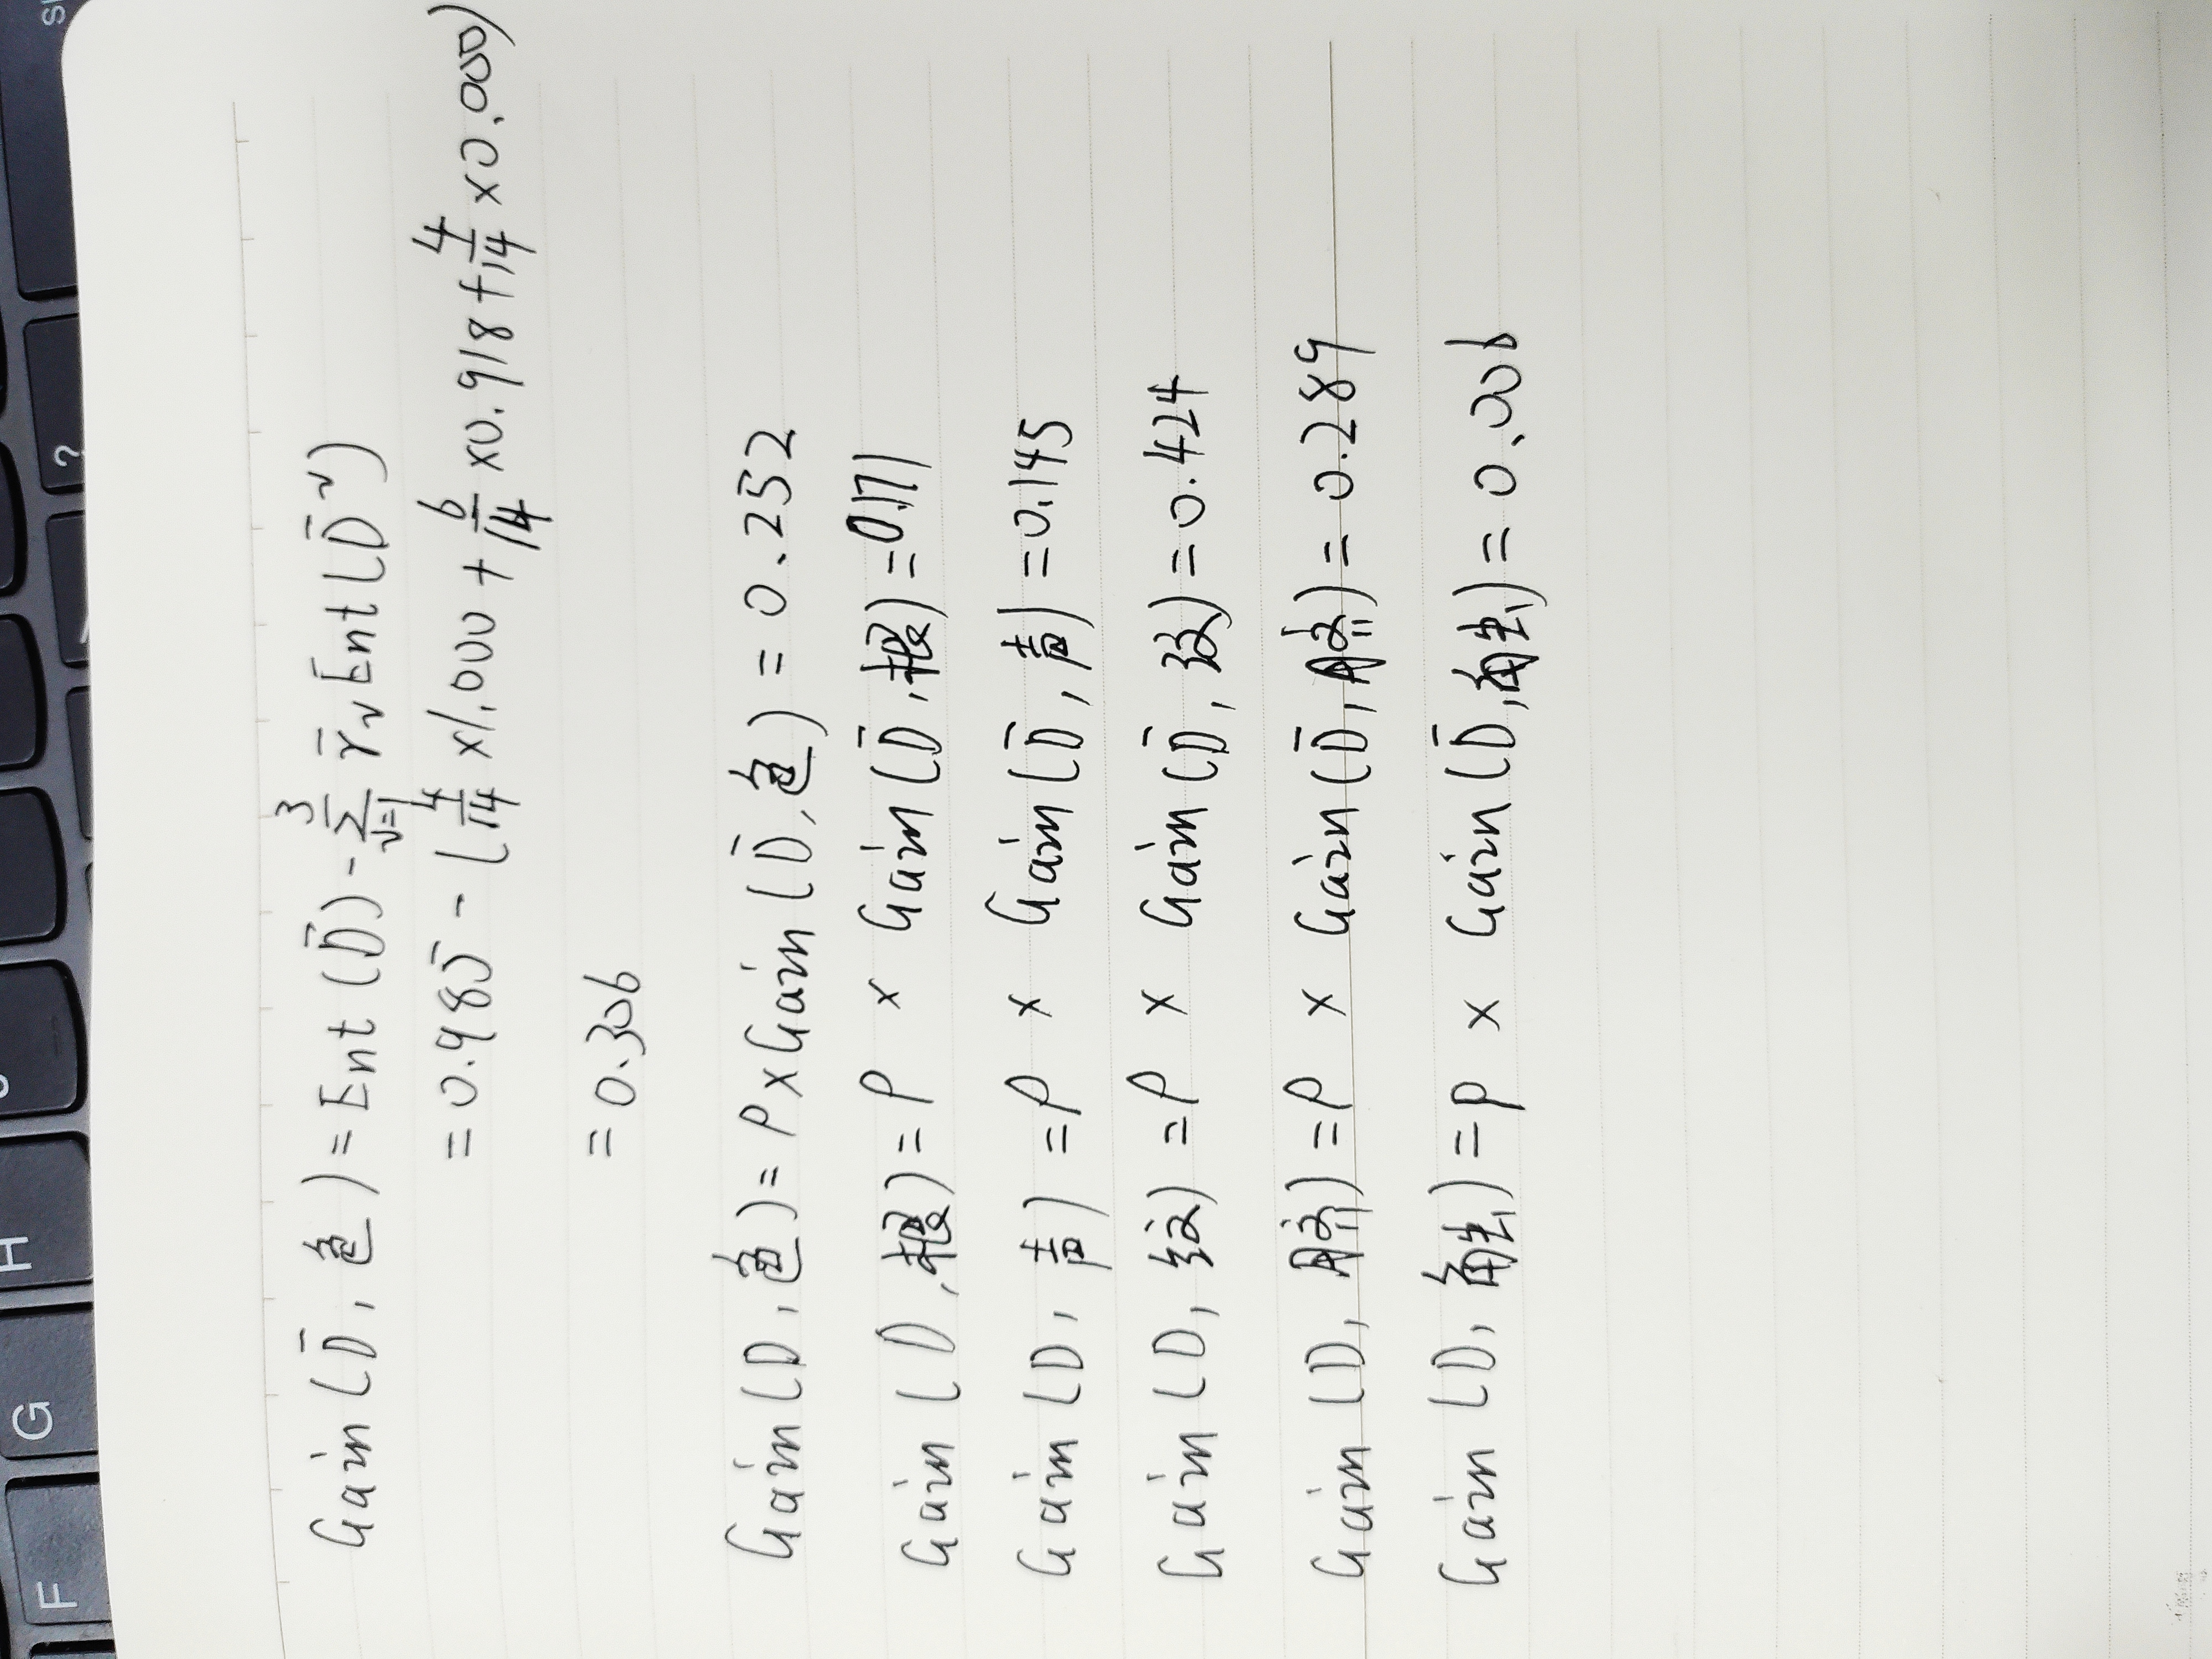 F G H ?
Gain(D̄, 色) = Ent(D̄) - ∑_{v=1}^{3} r̄_v Ent(D̄^v)
= 0.985 - (4/14 ×1.000 + 6/14 ×0.918 + 4/14 ×0.000)
= 0.306
Gain(D, 色) = ρ×Gain(D̄, 色) = 0.252
Gain(D, 根) = ρ × Gain(D̄, 根) = 0.171
Gain(D, 声) = ρ × Gain(D̄, 声) = 0.145
Gain(D, 纹) = ρ × Gain(D̄, 纹) = 0.424
Gain(D, 脐) = ρ × Gain(D̄, 脐) = 0.289
Gain(D, 触) = ρ × Gain(D̄, 触) = 0.006